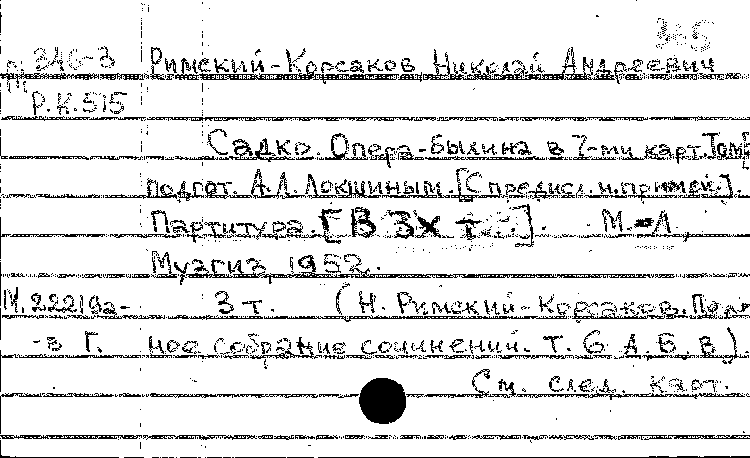 365
346-3 Римский-Корсаков, Николай Андреевич
Р.К.515
Садко. Опера-былина в 7-ми карт. Том
подгот. А.Л. Локшиным. [С предисл. и примеч.].
Партитура. [В 3х т.]. М.-Л.,
Музгиз, 1952.
М.22219а- 3 т. (Н. Римский-Корсаков. Пол-
-в Г. ное собрание сочинений. Т. 6 А, Б, В)
См. след. карт.